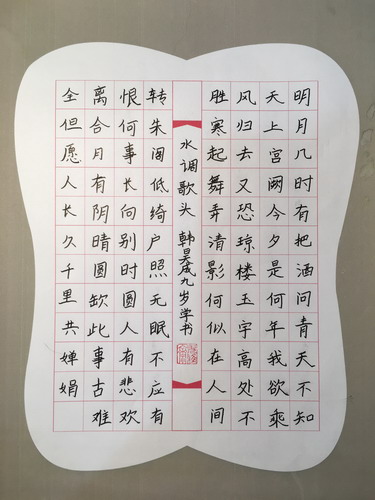 明月几时有把酒问青天不知
天上宫阙今夕是何年我欲乘
风归去又恐琼楼玉宇高处不
胜寒起舞弄清影何似在人间
水调歌头 韩昊成九岁学书
转朱阁低绮户照无眠不应有
恨何事长向别时圆人有悲欢
离合月有阴晴圆缺此事古难
全但愿人长久千里共婵娟